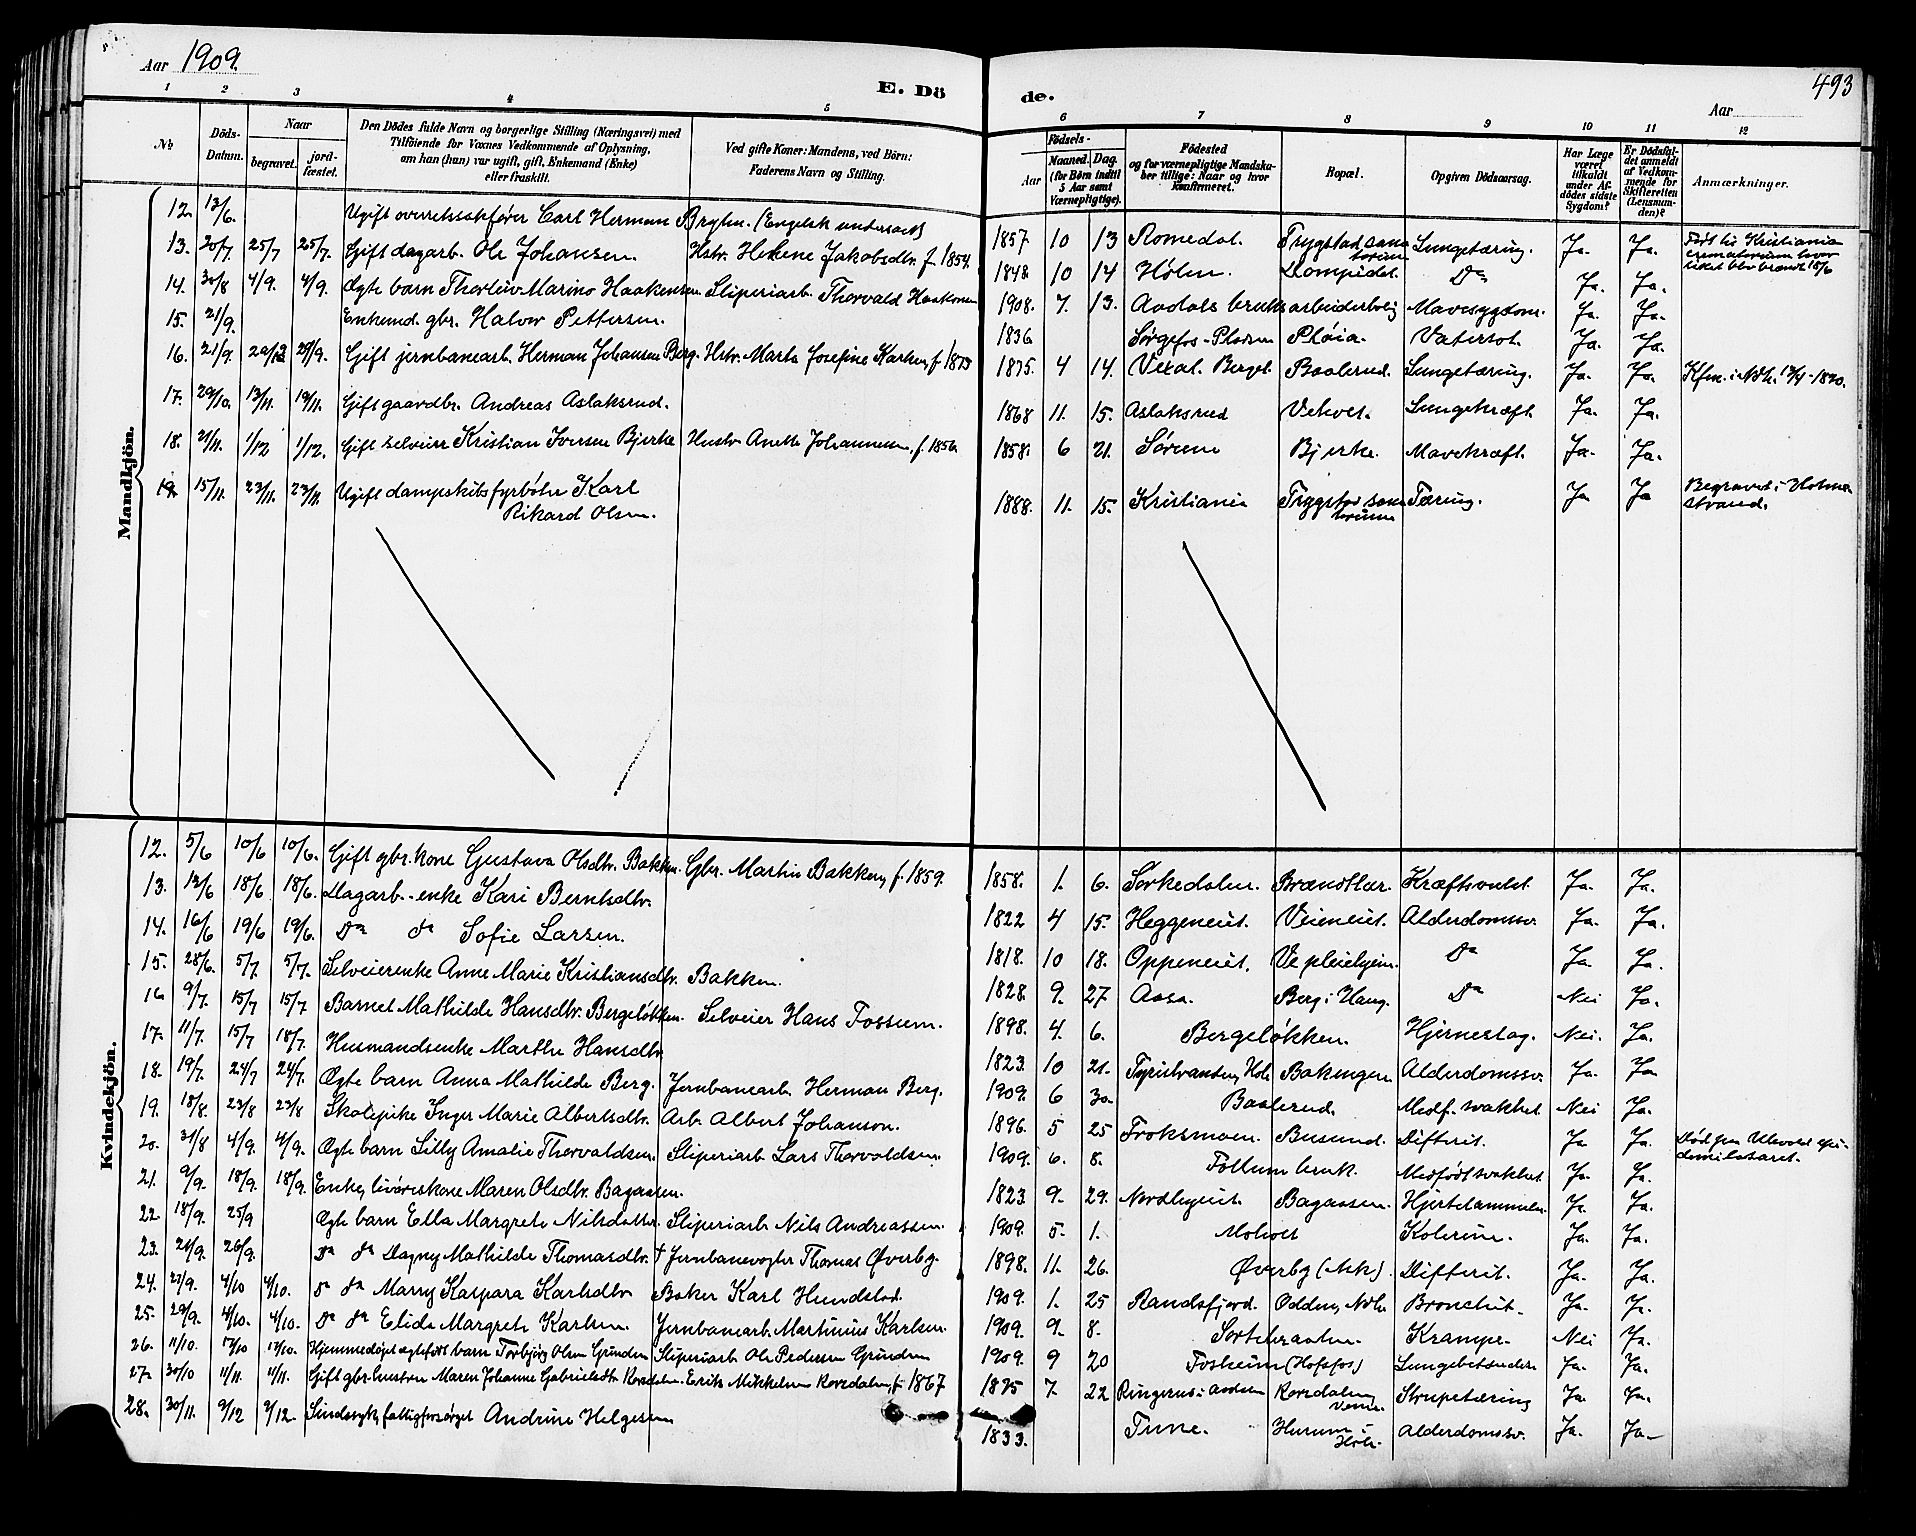 Aar 1909.
E. Døde.
Aar
493
1 2 3 4 5 6 7 8 9 10 11 12
No
Døds-Datum.
Naar
begravet.
jord-fæstet.
Den Dødes fulde Navn og borgerlige Stilling (Næringsvei) med
Tilføiende for Voxnes Vedkommende af Oplysning,
om han (hun) var ugift, gift, Enkemand (Enke)
eller fraskilt.
Ved gifte Koner: Mandens, ved Børn:
Faderens Navn og Stilling.
Fødsels-
Aar
Maaned. Dag.
(for Børn indtil
5 Aar samt
Værnepligtige).
Fødested
og for værnepligtige Mandska-
ber tillige: Naar og hvor
konfirmeret.
Bopæl.
Opgiven Dødsaarsag.
Har Læge
været
tilkaldt
under Af-
dødes sidste
Sygdom?
Er Dødsfal-
det anmeldt
af Vedkom-
mende for
Skifteretten
(Lensman-
den)?
Anmærkninger.
Mandkjøn.
12. 13/6. Ugift overretssakfører Carl Herman Bryhn. (Engelsk undersaat) 1857. 10 13 Romedal. Trygstad sanatorium Lungetæring. Ja. Ja. Ført til Kristiania crematorium hvor liket blev brændt
13. 20/7. 25/7 25/7. Gift dagarb. Ole Johansen. Hstr. Helene Jakobsdtr. f. 1854. 1848. 10 14 Hølen. Dompidet. Do Ja. Ja.
14. 30/8 4/9. 4/9. Ægte barn Thorleiv Marino Haakensen Sliperiarb. Thorvald Haakonsen 1908. 7. 13. Aadals bruks arbeiderbolig Mavesygdom. Ja. Ja.
15. 21/9. Enkemd. gbr. Halvor Pettersen. 1836 Sørgefos-Pladsen Pløia. Vatersot. Ja. Ja.
16. 21/9. 29/9. Gift jernbanearb. Herman Johansen Berg. Hstr. Marta Josefine f. 1873 1875. 4 14. Bergst. Baalerud. Lungetæring. Ja. Ja. Kfm. i Ndh. 1890.
17. 29/10. 13/11. 13/11. Gift gaardbr. Andreas Aslaksrud. 1868 11. 15. Aslaksrud Veholt. Lungekræft. Ja. Ja.
18. 21/11. 1/12 1/12. Gift selveier Kristian Iversen Bjerke Hustr. Anette Johannesen, f. 1856. 1858. 6 21. Sørum Bjerke. Mavekræft. Ja. Ja.
19. 15/11. 23/11. 23/11. Ugift dampskibsfyrbøter Karl
Rikard Olsen. 1888. 11. 15. Kristiania Trygstad sanatorium Tæring. Ja Ja Begravet i Holmestrand.
Kvindekjøn.
12. 5/6 10/6 10/6. Gift gbr. kone Gustava Olsdtr. Bakken. Gbr. Martin Bakken, f. 1859. 1858. 1. 6. Sørkedalen. Kræftsvulst. Ja. Ja.
13. 13/6 18/6 18/6. Dagarb.-enke Kari Berntsdtr. 1822 4 15. Heggeneiet. Veieneiet. Alderdomssv. Ja. Ja.
14. 16/6 19/6 19/6. Do do Sofie Larsen. 1818. 10 18. Oppeneiet. Ve pleiehjem. Do Ja. Ja.
15. 28/6. 5/7. 5/7. Selveierenke Anne Marie Kristiansdtr. Bakken. 1828. 9. 27 Aasa. Berg i Haug. Do Nei Ja.
16 9/7. 15/7 15/7 Barnet Mathilde Hansdtr. Bergeløkken. Selveier Hans Fossum. 1898. 4. 6. Bergeløkken. Hjerneslag. Nei. Ja.
17. 11/7. 15/7 18/7. Husmandsenke Marthe Hansdtr. 1823. 10 21. Tyristranden, Hole Bakengen Alderdomssv. Ja. Ja
18. 19/7. 24/7 24/7. Ægte barn Anna Mathilde Berg. Jernbanearb. Herman Berg. 1909. 6 30. Baalerud. Medf. svakhet Nei Ja.
19. 18/8. 23/8 23/8 Skolepike Inger Marie Albertsdtr. Arb. Albert Johanson. 1896. 5 25 Froksmoen. Busund. Difterit. Ja Ja. Død paa Ulevold epidemilasaret.
20. 31/8 4/9. 4/9. Ægte barn Lilly Amalie Thorvaldsen. Sliperiarb. Lars Thorvaldsen. 1909. 6. 8. Follum bruk. Medfødt svakhet. Ja. Ja.
21. 9/9. 18/9. 18/9. Enke, livøreskone Maren Olsdtr. Bagaasen. 1823. 9. 29. Bagaasen. Hjertelammelse. Ja. Ja.
22. 18/9. 25/9 Ægte barn Ella Margrete Nilsdatter. Sliperiarb. Nils Andreassen. 1909. 5. 1. Moholt Kolerine. Ja. Ja.
23. 21/9. 26/9. do do Dagny Mathilde Thomasdtr. † Jernbanevogter Thomas Øverby. 1898. 11. 26. Øverby (Ask). Difterit. Ja. Ja.
24. 27/9. 4/10 4/10. do do Marry Kaspara Karlsdtr Baker Karl Hundstad. 1909. 1. 25 Randsfjord. Odden, Ndh. Bronchit. Ja. Ja.
25. 29/9. 4/10. 4/10. do do Elida Margrete Karlsen. Jernbanearb. Martinius Karlsen. 1909. 9. 8. Sortebraaten. Krampe. Nei Ja.
26. 11/10. 17/10 17/10. Hjemmedøpt ægtefødt barn Torbjørg Olsen Grinden Sliperiarb. Ole Pedersen Grinden 1909. 9 20 Fosheim (Hofsfos) Lungebetændelse Ja. Ja.
27. 30/10 11/11. 11/11. Gift gbr. hustru Maren Johanne Gabrielsdtr. Korsdalen. Erik Mikkelsen Korsdalen, f. 1867 1875 7. 22 Ringerus i Korsdalen Strupetæring Ja. Ja.
28. 30/11. 9/12 9/12. Sindssyk, fattigforsørget Andrine Helgesen 1833. Tune. Hurum i Hole. Alderdomssv. Ja. Ja.